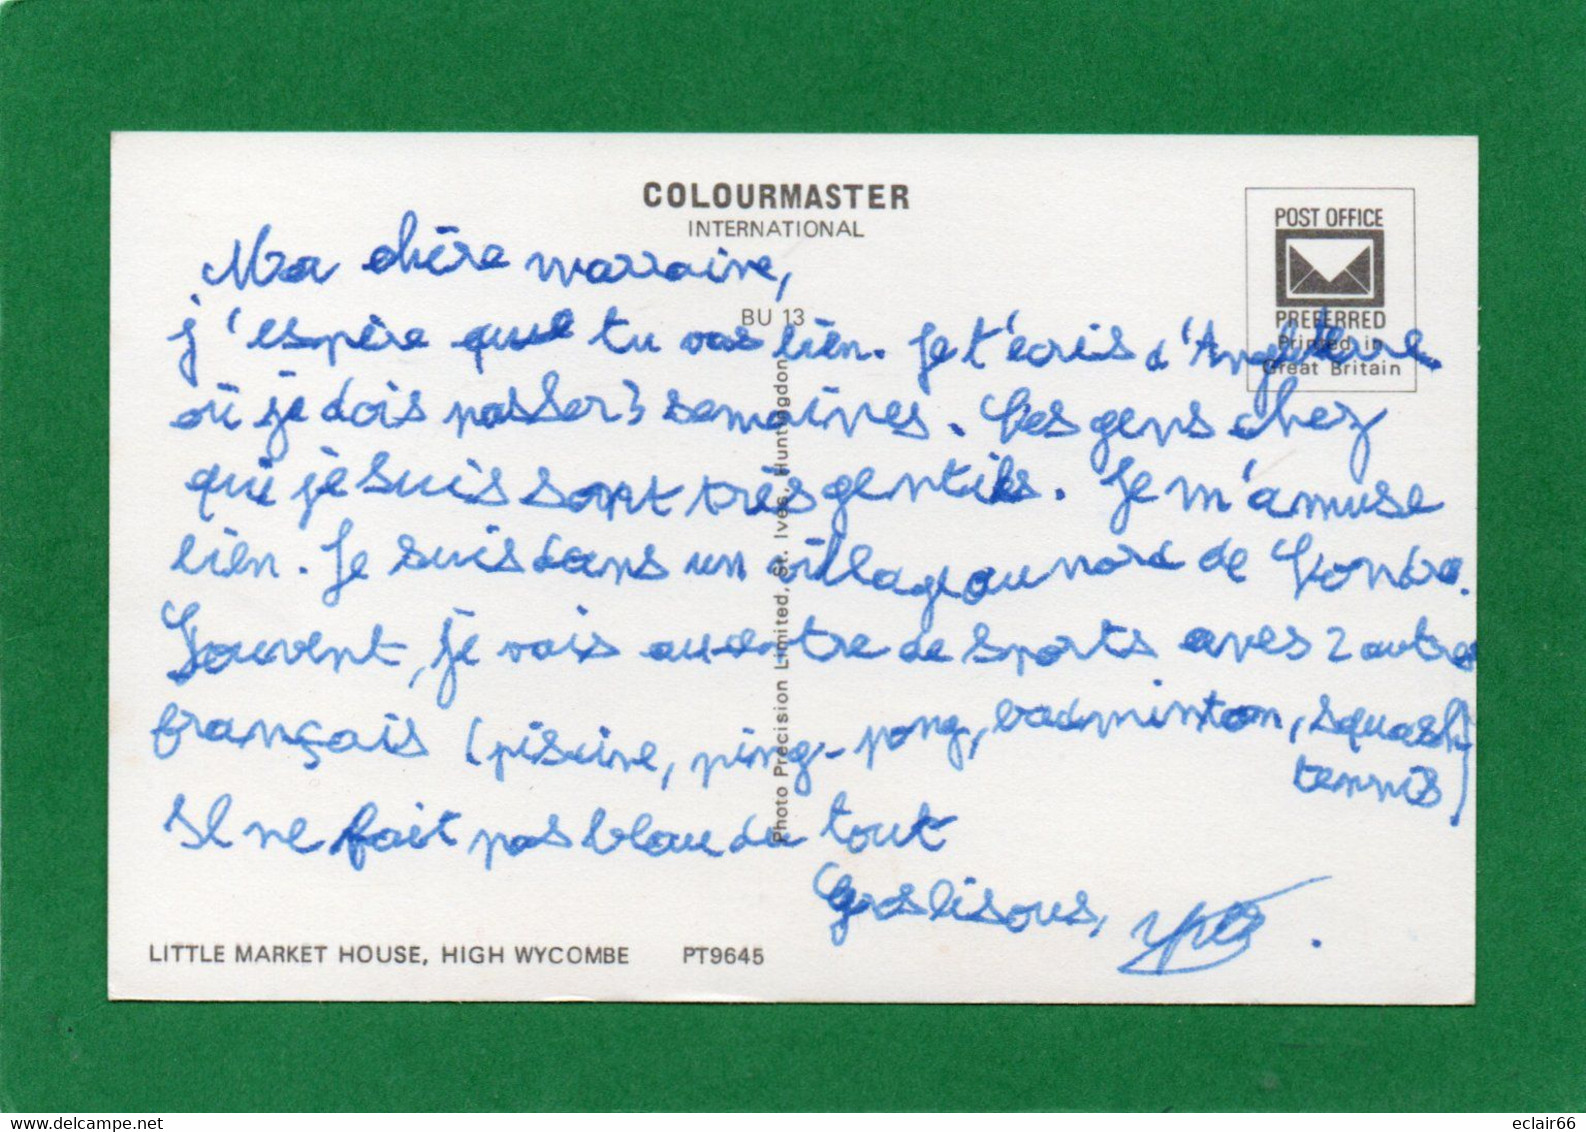 COLOURMASTER
INTERNATIONAL
POST OFFICE
PREFERRED
Printed in
Great Britain
BU 13
Photo Precision Limited, St. Ives, Huntingdon
Ma chère marraine,
j'espère que tu vas bien. Je t'écris d'Angleterre
où je dois passer 3 semaines. Les gens chez
qui je suis sont très gentils. Je m'amuse
bien. Je suis dans un village au nord de Londre.
Souvent, je vais au centre de sports avec 2 autres
français (piscine, ping-pong, badminton, squash,
tennis)
Il ne fait pas beau du tout
Gros bisous,
LITTLE MARKET HOUSE, HIGH WYCOMBE PT9645
www.delcampe.net
eclair66